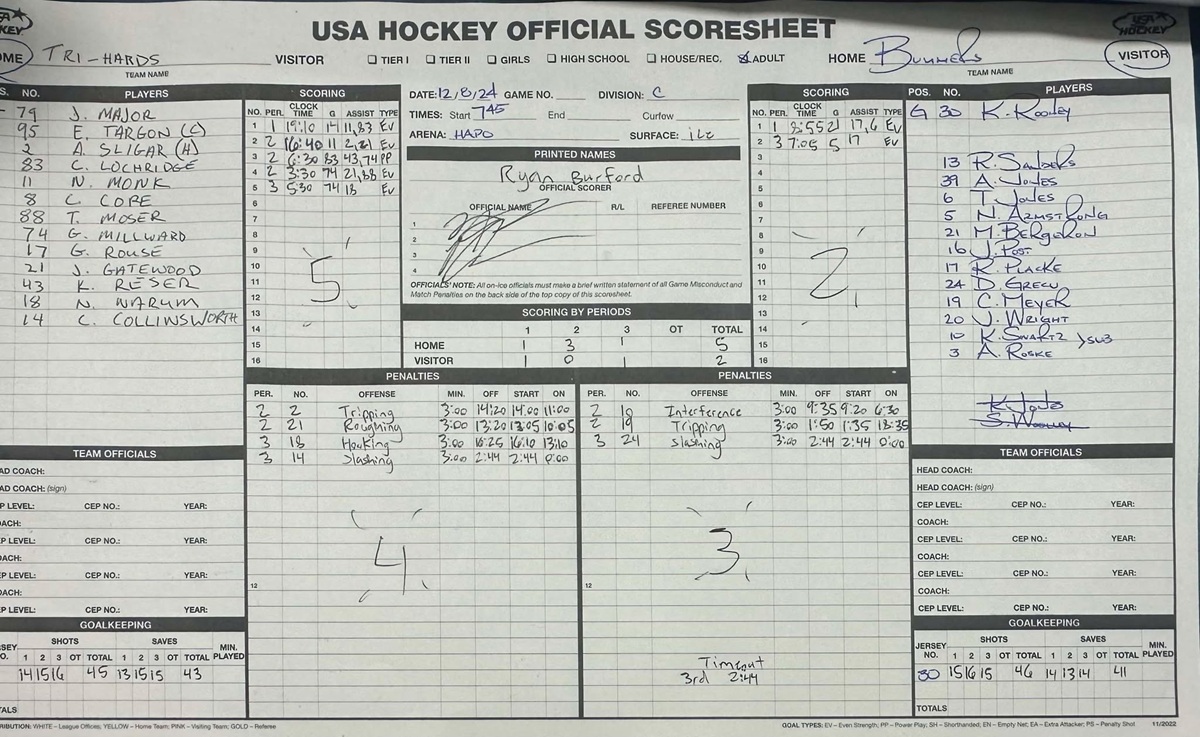 USA HOCKEY OFFICIAL SCORESHEET
TRI-HARDS
TEAM NAME
VISITOR
TIER I
TIER II
GIRLS
HIGH SCHOOL
HOUSE/REC.
ADULT
HOME
Bummers
TEAM NAME
VISITOR
NO. PLAYERS
79 J. MAJOR
95 E. TARGON (C)
2 A. SLIGAR (A)
83 C. LOCHRIDGE
11 N. MONK
8 C. CORE
88 T. MOSER
74 G. MILLWARD
17 G. ROUSE
21 J. GATEWOOD
43 K. RESER
18 N. WARUM
14 C. COLLINSWORTH
SCORING
NO. PER. CLOCK TIME G ASSIST TYPE
1 1 19:10 14 11,83 EV
2 2 16:40 11 2,21 EV
3 2 6:30 83 43,74 PP
4 2 3:30 74 21,88 EV
5 3 5:30 74 18 EV
6
7
8
9
10
11
12
13
14
15
16
5
DATE: 12/8/24 GAME NO. DIVISION: C
TIMES: Start 745 End Curfew
ARENA: HAPO SURFACE: ice
PRINTED NAMES
Ryan Burford
OFFICIAL SCORER
OFFICIAL NAME R/L REFEREE NUMBER
1
2
3
4
OFFICIALS' NOTE: All on-ice officials must make a brief written statement of all Game Misconduct and
Match Penalties on the back side of the top copy of this scoresheet.
SCORING BY PERIODS
1 2 3 OT TOTAL
HOME 1 3 1 5
VISITOR 1 0 1 2
SCORING
NO. PER. CLOCK TIME G ASSIST TYPE
1 1 8:55 21 17,6 EV
2 3 7:05 5 17 EV
3
4
5
6
7
8
9
10
11
12
13
14
15
16
2
POS. NO. PLAYERS
G 30 K. Kooley
13 R. Sanders
39 A. Jones
6 T. Jones
5 N. Armstrong
21 M. Bergeron
16 J. Post
17 R. Placke
24 D. Grew
19 C. Meyer
20 J. Wright
10 K. Swartz > SUB
3 A. Roske
K. Jones
PENALTIES
PER. NO. OFFENSE MIN. OFF START ON
2 2 Tripping 3:00 14:20 14:00 11:00
2 21 Roughing 3:00 13:20 13:05 10:05
3 18 Hooking 3:00 16:25 16:10 13:10
3 14 Slashing 3:00 2:44 2:44 0:00
4
12
PENALTIES
PER. NO. OFFENSE MIN. OFF START ON
2 19 Interference 3:00 9:35 9:20 6:30
2 19 Tripping 3:00 1:50 1:35 18:35
3 24 Slashing 3:00 2:44 2:44 0:00
3
12
Timeout
3rd 2:44
TEAM OFFICIALS
AD COACH:
AD COACH: (sign)
EP LEVEL: CEP NO.: YEAR:
ACH:
EP LEVEL: CEP NO.: YEAR:
ACH:
EP LEVEL: CEP NO.: YEAR:
ACH:
EP LEVEL: CEP NO.: YEAR:
GOALKEEPING
SHOTS SAVES MIN. PLAYED
1 2 3 OT TOTAL 1 2 3 OT TOTAL
14 15 16 45 13 15 15 43
TALS
TEAM OFFICIALS
HEAD COACH:
HEAD COACH: (sign)
CEP LEVEL: CEP NO.: YEAR:
COACH:
CEP LEVEL: CEP NO.: YEAR:
COACH:
CEP LEVEL: CEP NO.: YEAR:
COACH:
CEP LEVEL: CEP NO.: YEAR:
GOALKEEPING
JERSEY NO. SHOTS SAVES MIN. PLAYED
1 2 3 OT TOTAL 1 2 3 OT TOTAL
30 15 16 15 46 14 13 14 41
TOTALS
RIBUTION: WHITE – League Offices; YELLOW – Home Team; PINK – Visiting Team; GOLD – Referee
GOAL TYPES: EV – Even Strength; PP – Power Play; SH – Shorthanded; EN – Empty Net; EA – Extra Attacker; PS – Penalty Shot 11/2022